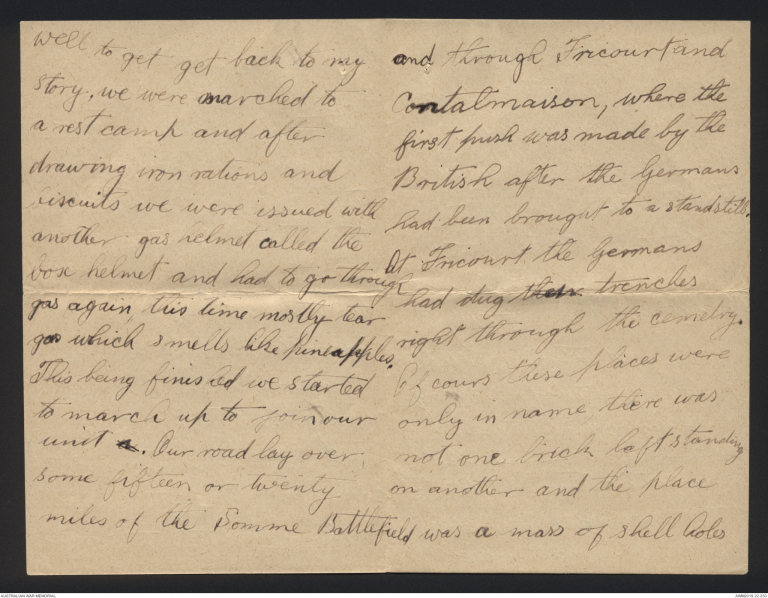 well to get get back to my
story, we were marched to
a rest camp and after
drawing iron rations and
biscuits we were issued with
another gas helmet called the
box helmet and had to go through
gas again, this time mostly tear
gas which smells like pineapples.
This being finished we started
to march up to join our
unit a. Our road lay over
some fifteen or twenty
miles of the Somme Battlefield
and through Fricourt and
Contalmaison, where the
first push was made by the
British after the Germans
had been brought to a standstill.
At Fricourt the Germans
had dug their trenches
right through the cemetry.
Of cours these places were
only in name there was
not one brick left standing
on another and the place
was a mass of shell holes
AUSTRALIAN WAR MEMORIAL